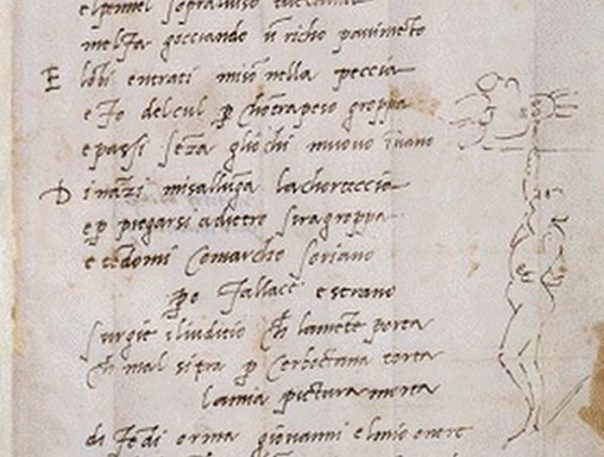 elpennel sopraluiso tuctavia
melfa gocciando ũ richo pauimẽto
E lõbi entrati miso nella peccia
e fo delcul p chõtrapeso groppa
e passi sẽza gliochi muouo inuano
D inazi misallũga lachorteccia
e p piegarsi adietro siragroppa
e tẽdomi comarcho soriano
po fallace e strano
surgie iliuditio ch lamẽte porta
ch mal sitra p cerboctana torta
lamia pictura morta
difẽdi orma giouanni elmio onore